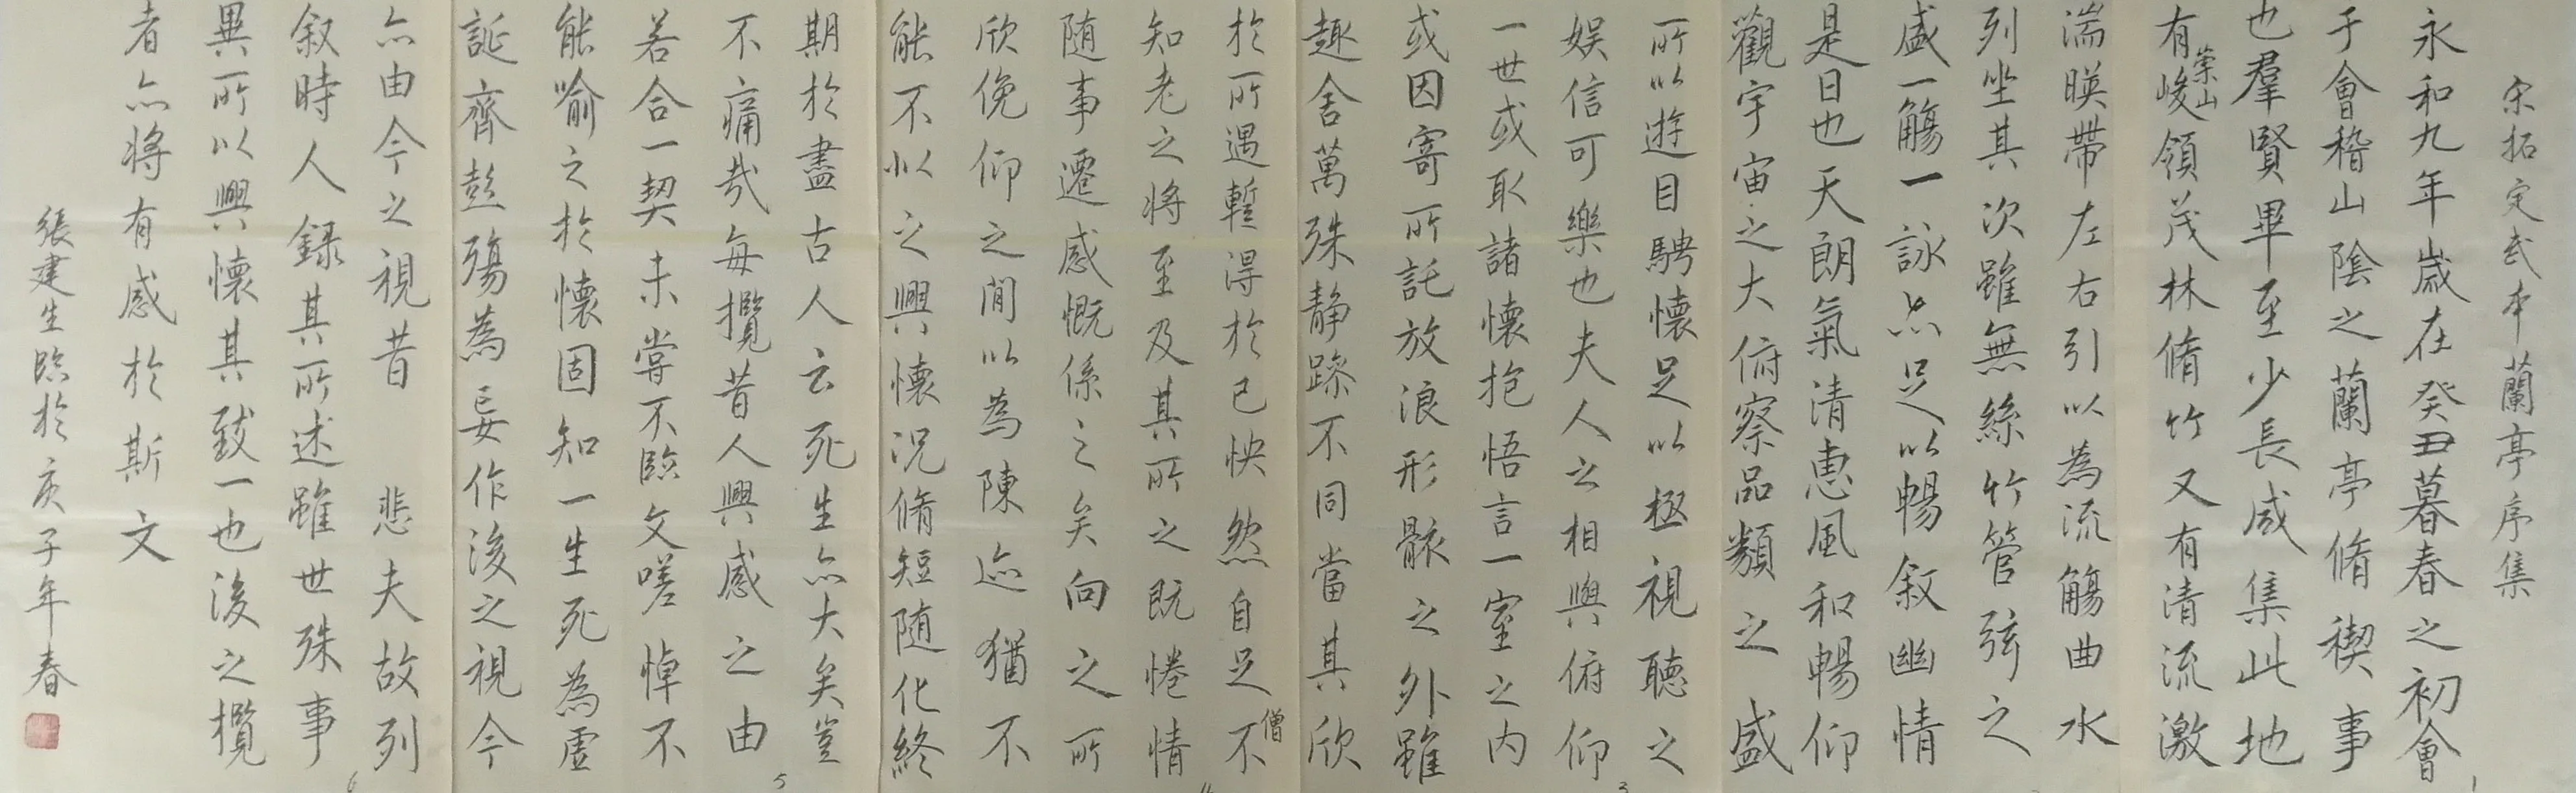 宋拓定武本蘭亭序集
永和九年歲在癸丑暮春之初會
于會稽山陰之蘭亭脩禊事
也羣賢畢至少長咸集此地
有崇山峻領茂林脩竹又有清流激
湍暎帶左右引以為流觴曲水
列坐其次雖無絲竹管弦之
盛一觴一詠亦足以暢敘幽情
是日也天朗氣清惠風和暢仰
觀宇宙之大俯察品類之盛
所以遊目騁懷足以極視聽之
娛信可樂也夫人之相與俯仰
一世或取諸懷抱悟言一室之內
或因寄所託放浪形骸之外雖
趣舍萬殊静躁不同當其欣
於所遇蹔得於己怏然自足不
僧
知老之將至及其所之既惓情
随事遷感慨係之矣向之所
欣俛仰之閒以為陳迹猶不
能不以之興懷況脩短随化終
期於盡古人云死生亦大矣豈
不痛哉每攬昔人興感之由
若合一契未嘗不臨文嗟悼不
能喻之於懷固知一死生為虛
誕齊彭殤為妄作後之視今
亦由今之視昔 悲夫故列
叙時人錄其所述雖世殊事
異所以興懷其致一也後之攬
者亦將有感於斯文
張建生臨於庚子年春
1
3
4
5
6